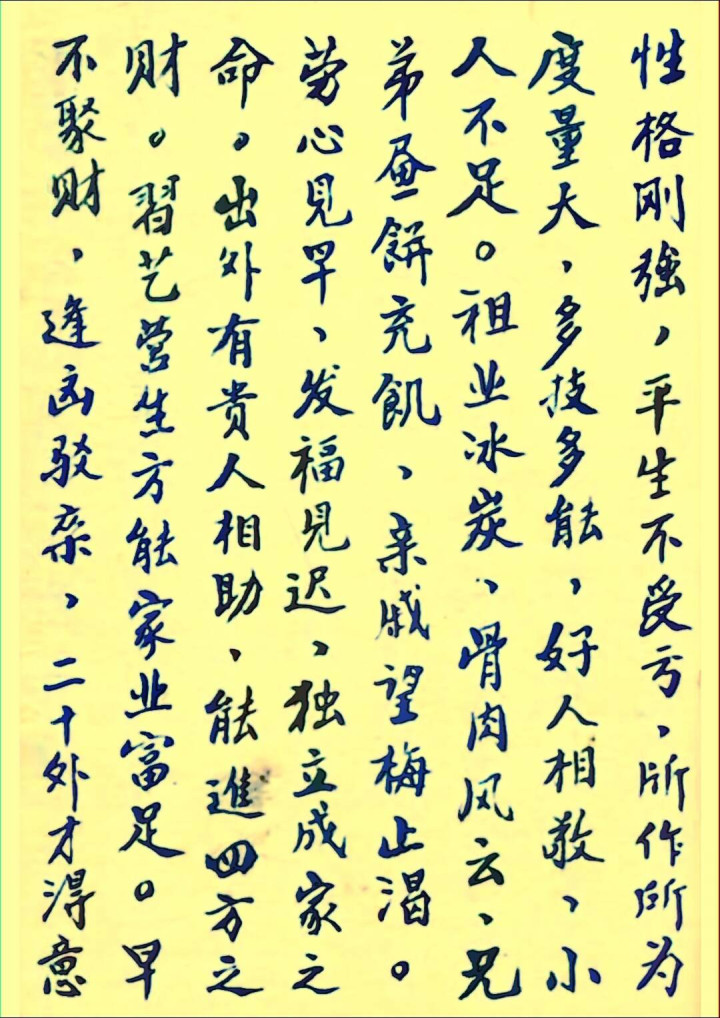 性格刚强，平生不受亏、所作所为
度量大，多技多能，好人相敬、小
人不足。祖业冰炭、骨肉风云、兄
弟画餅充飢、亲戚望梅止渴。
劳心见早、发福见迟、独立成家之
命。出外有贵人相助、能進四方之
财。習艺营生方能家业富足。早
不聚财，逢凶驳杂，二十外才得意